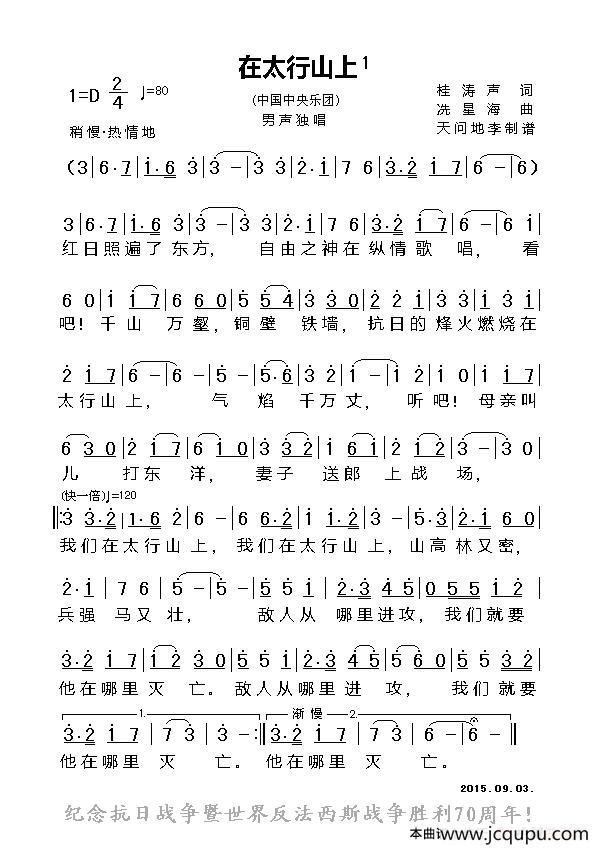 在太行山上1
1=D 2/4 ♩=80
(中国中央乐团)
男声独唱
桂涛声 词
冼星海 曲
天问地李制谱
稍慢·热情地
(3|6·7|i·6 3|3 —|3 3|2·i|7 6|7 6|6 —|6 —)
3|6·7|i·6 3|3 —|3 3|2·i|7 6|3·2 i 7|6 —|6 i|
红日照遍了东方， 自由之神在纵情歌唱， 看
6 0|i i 7|6 6 0|5 5 4|3 3 0|2 2 i|3 3|3 i|
吧！千山万壑，铜壁铁墙，抗日的烽火燃烧在
2 i 7|6 —|6 —|5 —|5·6|2 —|2 i|2 0|i i|
太行山上， 气焰千万丈， 听吧！母亲叫
6 3 0|2 i 7|6 i 0|5 5|i i 2|3 —|3 0|
儿打东洋，妻子送郎上战场，
(快一倍)♩=120
‖:3 3·2|i·6 2|6 —|6 6·2|i 2|3 —|5·3|2·i 6 0|
我们在太行山上，我们在太行山上，山高林又密，
2·i|7 6|5 —|5 —|5 5 i|2·3 4 2|0 5 5 5 i|
兵强马又壮， 敌人从哪里进攻，我们就要
3·2 i 7|i 2 3 0|5 5 i|2·3 4 5|5 6 0|5 5 3 2|
他在哪里灭亡。敌人从哪里进攻， 我们就要
1. 渐慢 2.
3·2 i 7|7 3|3 —:‖3·2 i 7|7 3|6 —|6 —‖
他在哪里灭亡。他在哪里灭亡。
2015.09.03.
纪念抗日战争暨世界反法西斯战争胜利70周年！
本曲www.jcqupu.com